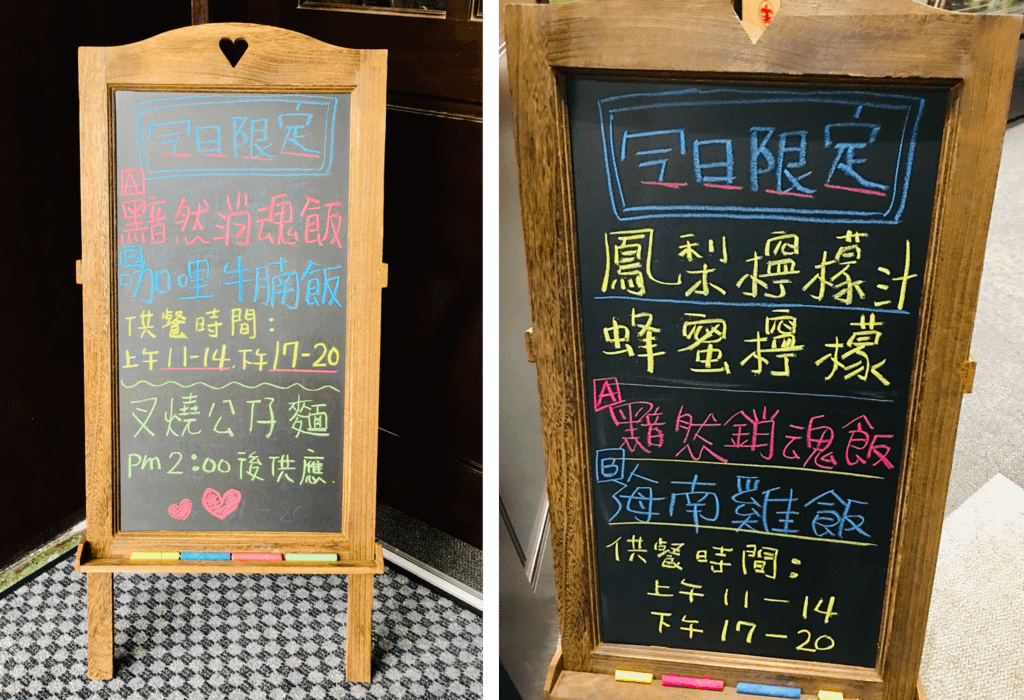 今日限定
A
黯然消魂飯
B
咖哩牛腩飯
供餐時間：
上午11-14.下午17-20
叉燒公仔麵
pm2:00後供應.
今日限定
鳳梨檸檬汁
蜂蜜檸檬
A
黯然銷魂飯
B
海南雞飯
供餐時間：
上午11-14
下午17-20